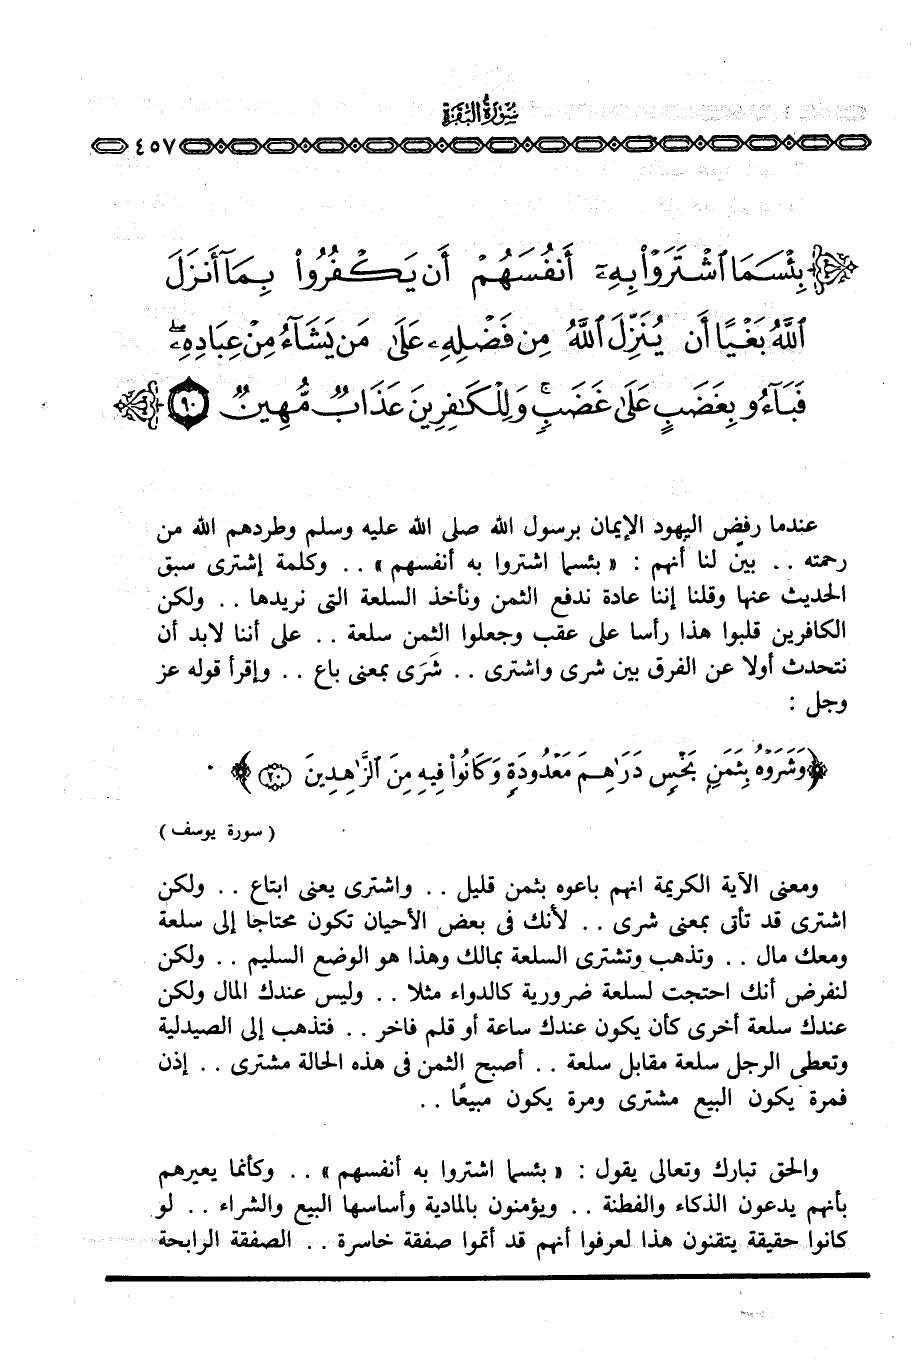 سُورَةُ البَقَرَة
٤٥٧
بِئْسَمَا ٱشْتَرَوْا۟ بِهِۦٓ أَنفُسَهُمْ أَن يَكْفُرُوا۟ بِمَآ أَنزَلَ
ٱللَّهُ بَغْيًا أَن يُنَزِّلَ ٱللَّهُ مِن فَضْلِهِۦ عَلَىٰ مَن يَشَآءُ مِنْ عِبَادِهِۦ ۖ
فَبَآءُو بِغَضَبٍ عَلَىٰ غَضَبٍ ۚ وَلِلْكَـٰفِرِينَ عَذَابٌ مُّهِينٌ ٩٠
عندما رفض اليهود الإيمان برسول الله صلى الله عليه وسلم وطردهم الله من
رحمته .. بيّن لنا أنهم : « بئسما اشتروا به أنفسهم » .. وكلمة إشترى سبق
الحديث عنها وقلنا إننا عادة ندفع الثمن ونأخذ السلعة التى نريدها .. ولكن
الكافرين قلبوا هذا رأسا على عقب وجعلوا الثمن سلعة .. على أننا لابد أن
نتحدث أولا عن الفرق بين شرى واشترى .. شَرَى بمعنى باع .. وإقرأ قوله عز
وجل :
﴿ وَشَرَوْهُ بِثَمَنٍ بَخْسٍ دَرَٰهِمَ مَعْدُودَةٍ وَكَانُوا۟ فِيهِ مِنَ ٱلزَّٰهِدِينَ ٢٠ ﴾
( سورة يوسف )
ومعنى الآية الكريمة انهم باعوه بثمن قليل .. واشترى يعنى ابتاع .. ولكن
اشترى قد تأتى بمعنى شرى .. لأنك فى بعض الأحيان تكون محتاجا إلى سلعة
ومعك مال .. وتذهب وتشترى السلعة بمالك وهذا هو الوضع السليم .. ولكن
لنفرض أنك احتجت لسلعة ضرورية كالدواء مثلا .. وليس عندك المال ولكن
عندك سلعة أخرى كأن يكون عندك ساعة أو قلم فاخر .. فتذهب إلى الصيدلية
وتعطى الرجل سلعة مقابل سلعة .. أصبح الثمن فى هذه الحالة مشترى .. إذن
فمرة يكون البيع مشترى ومرة يكون مبيعًا ..
والحق تبارك وتعالى يقول : « بئسما اشتروا به أنفسهم » .. وكأنما يعيرهم
بأنهم يدعون الذكاء والفطنة .. ويؤمنون بالمادية وأساسها البيع والشراء .. لو
كانوا حقيقة يتقنون هذا لعرفوا أنهم قد أتموا صفقة خاسرة .. الصفقة الرابحة